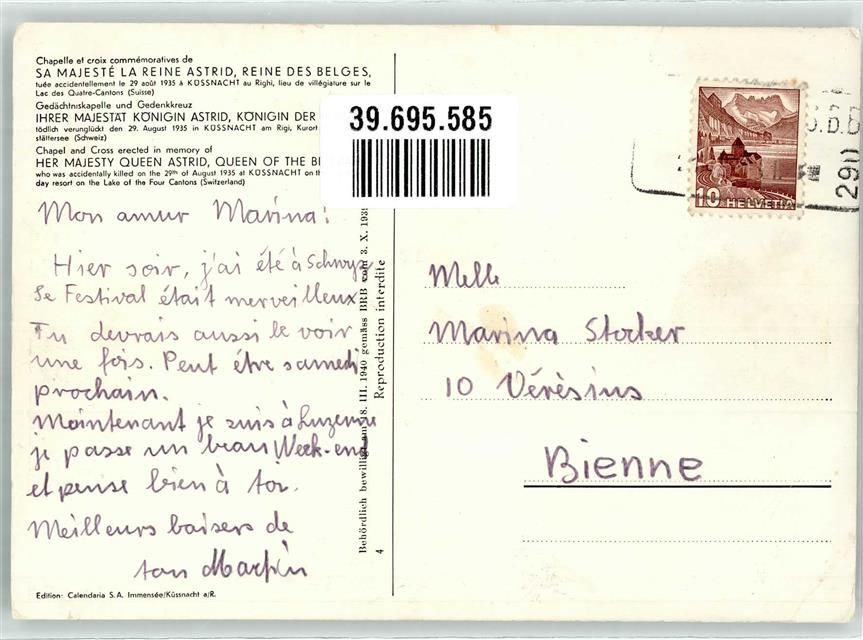 Chapelle et croix commémoratives de
SA MAJESTÉ LA REINE ASTRID, REINE DES BELGES,
tuée accidentellement le 29 août 1935 à KÜSSNACHT au Righi, lieu de villégiature sur le
Lac des Quatre-Cantons (Suisse)
Gedächtniskapelle und Gedenkkreuz
IHRER MAJESTAT KÖNIGIN ASTRID, KÖNIGIN DER
tödlich verunglückt den 29. August 1935 in KÜSSNACHT am Rigi, Kurort
stättersee (Schweiz)
Chapel and Cross erected in memory of
HER MAJESTY QUEEN ASTRID, QUEEN OF THE BE
who was accidentally killed on the 29th of August 1935 at KÜSSNACHT on th
day resort on the Lake of the Four Cantons (Switzerland)
Mon amur Marina!
Hier soir, j'ai été à Schwyz
Se Festival était merveilleux
Tu devrais aussi le voir
une fois. Peut être samedi
prochain.
Maintenant je suis à Luzerne
je passe un beau Week-end
et pense bien à toi.
Meilleurs baisers de
ton
Edition: Calendaria S.A. Immensée/Küssnacht a/R.
Behördlich bewilligt am 18. III. 1940 gemäss BRB vom 3. X. 1939
Reproduction interdite
4
39.695.585
10 HELVETIA
290
Melle
Marina Stocker
10 Vérèsius
Bienne